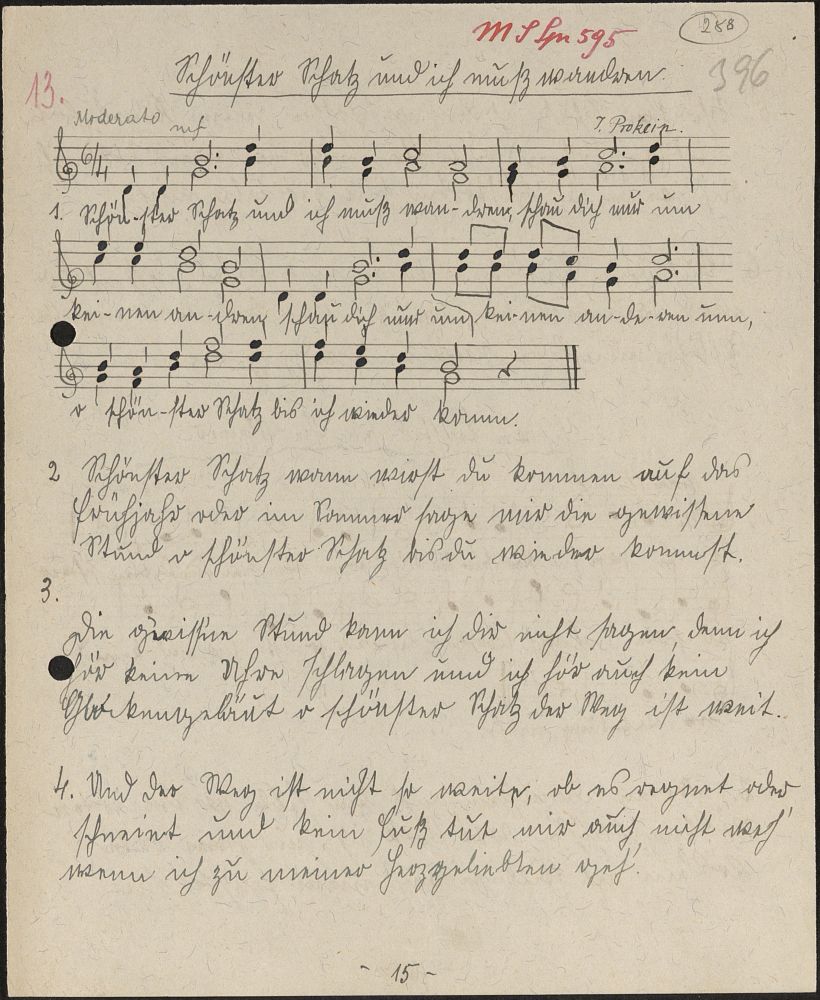 MS Gr 595
288
396
13.
Schönster Schatz und ich muß wandren.
Moderato mf
J. Prokein.
6/4
1. Schön-ster Schatz und ich muß wan-dren, schau dich nur um
kei-nen an-dren, schau dich nur um, kei-nen an-de-ren nim,
o schön-ster Schatz bis ich wieder komm.
2 Schönster Schatz wann wirst du kommen auf das
Frühjahr oder im Sommer sage mir die gewissene
Stund o schönster Schatz bis du wieder kommst.
3.
Die gewisse Stund kann ich dir nicht sagen, denn ich
hör keine Uhre schlagen und ich hör auch kein
Glockengeläut o schönster Schatz der Weg ist weit.
4. Und der Weg ist nicht so weite, ob es regnet oder
schneiet und kein Fuß tut mir auch nicht weh
wenn ich zu meiner Herzgeliebten geh'.
- 15 -